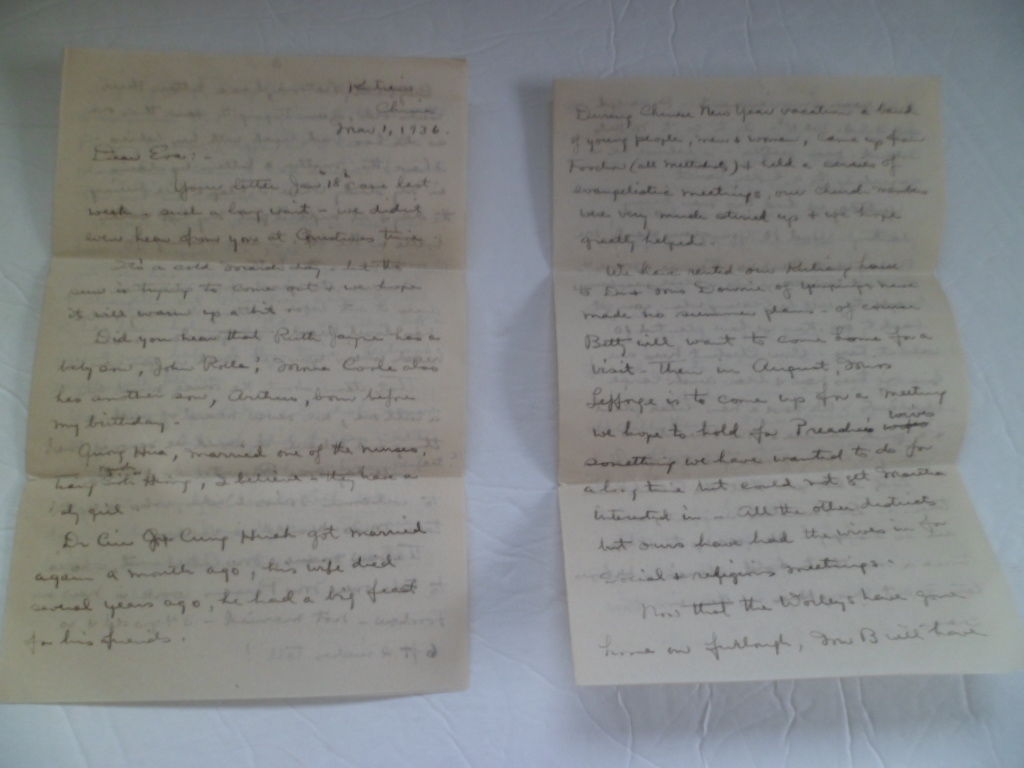 China
Mar 1, 1936.
Dear Eva:-
Your letter Jan 18th came last
week - such a long wait - we didn't
even hear from you at Christmas time.
It's a cold day - but the
sun is trying to come out & we hope
it will warm up a bit
Did you hear that Ruth Jayne has a
baby son, John ; Coole also
has another son, Arthur, born before
my birthday.
Hua, married one of the nurses,
, I believe & they have a
girl
Dr Hsieh got married
again a month ago, his wife died
several years ago, he had a big feast
for his friends.
During Chinese New Year vacation a band
of young people, men & women, came up from
Foochow (all Methodists) & held a series of
evangelistic meetings, our church members
were very much stirred up & we hope
greatly helped.
We have rented our Kuliang house
to Downie of have
made no summer plans - of course
Betty will want to come home for a
visit - Then in August,
is to come up for a meeting
we hope to hold for Preachers wives
something we have wanted to do for
a long time but could not get Martha
interested in - All the other districts
but ours have had the wives in for
social & religious meetings.
Now that the Worleys have gone
home on furlough, B will have